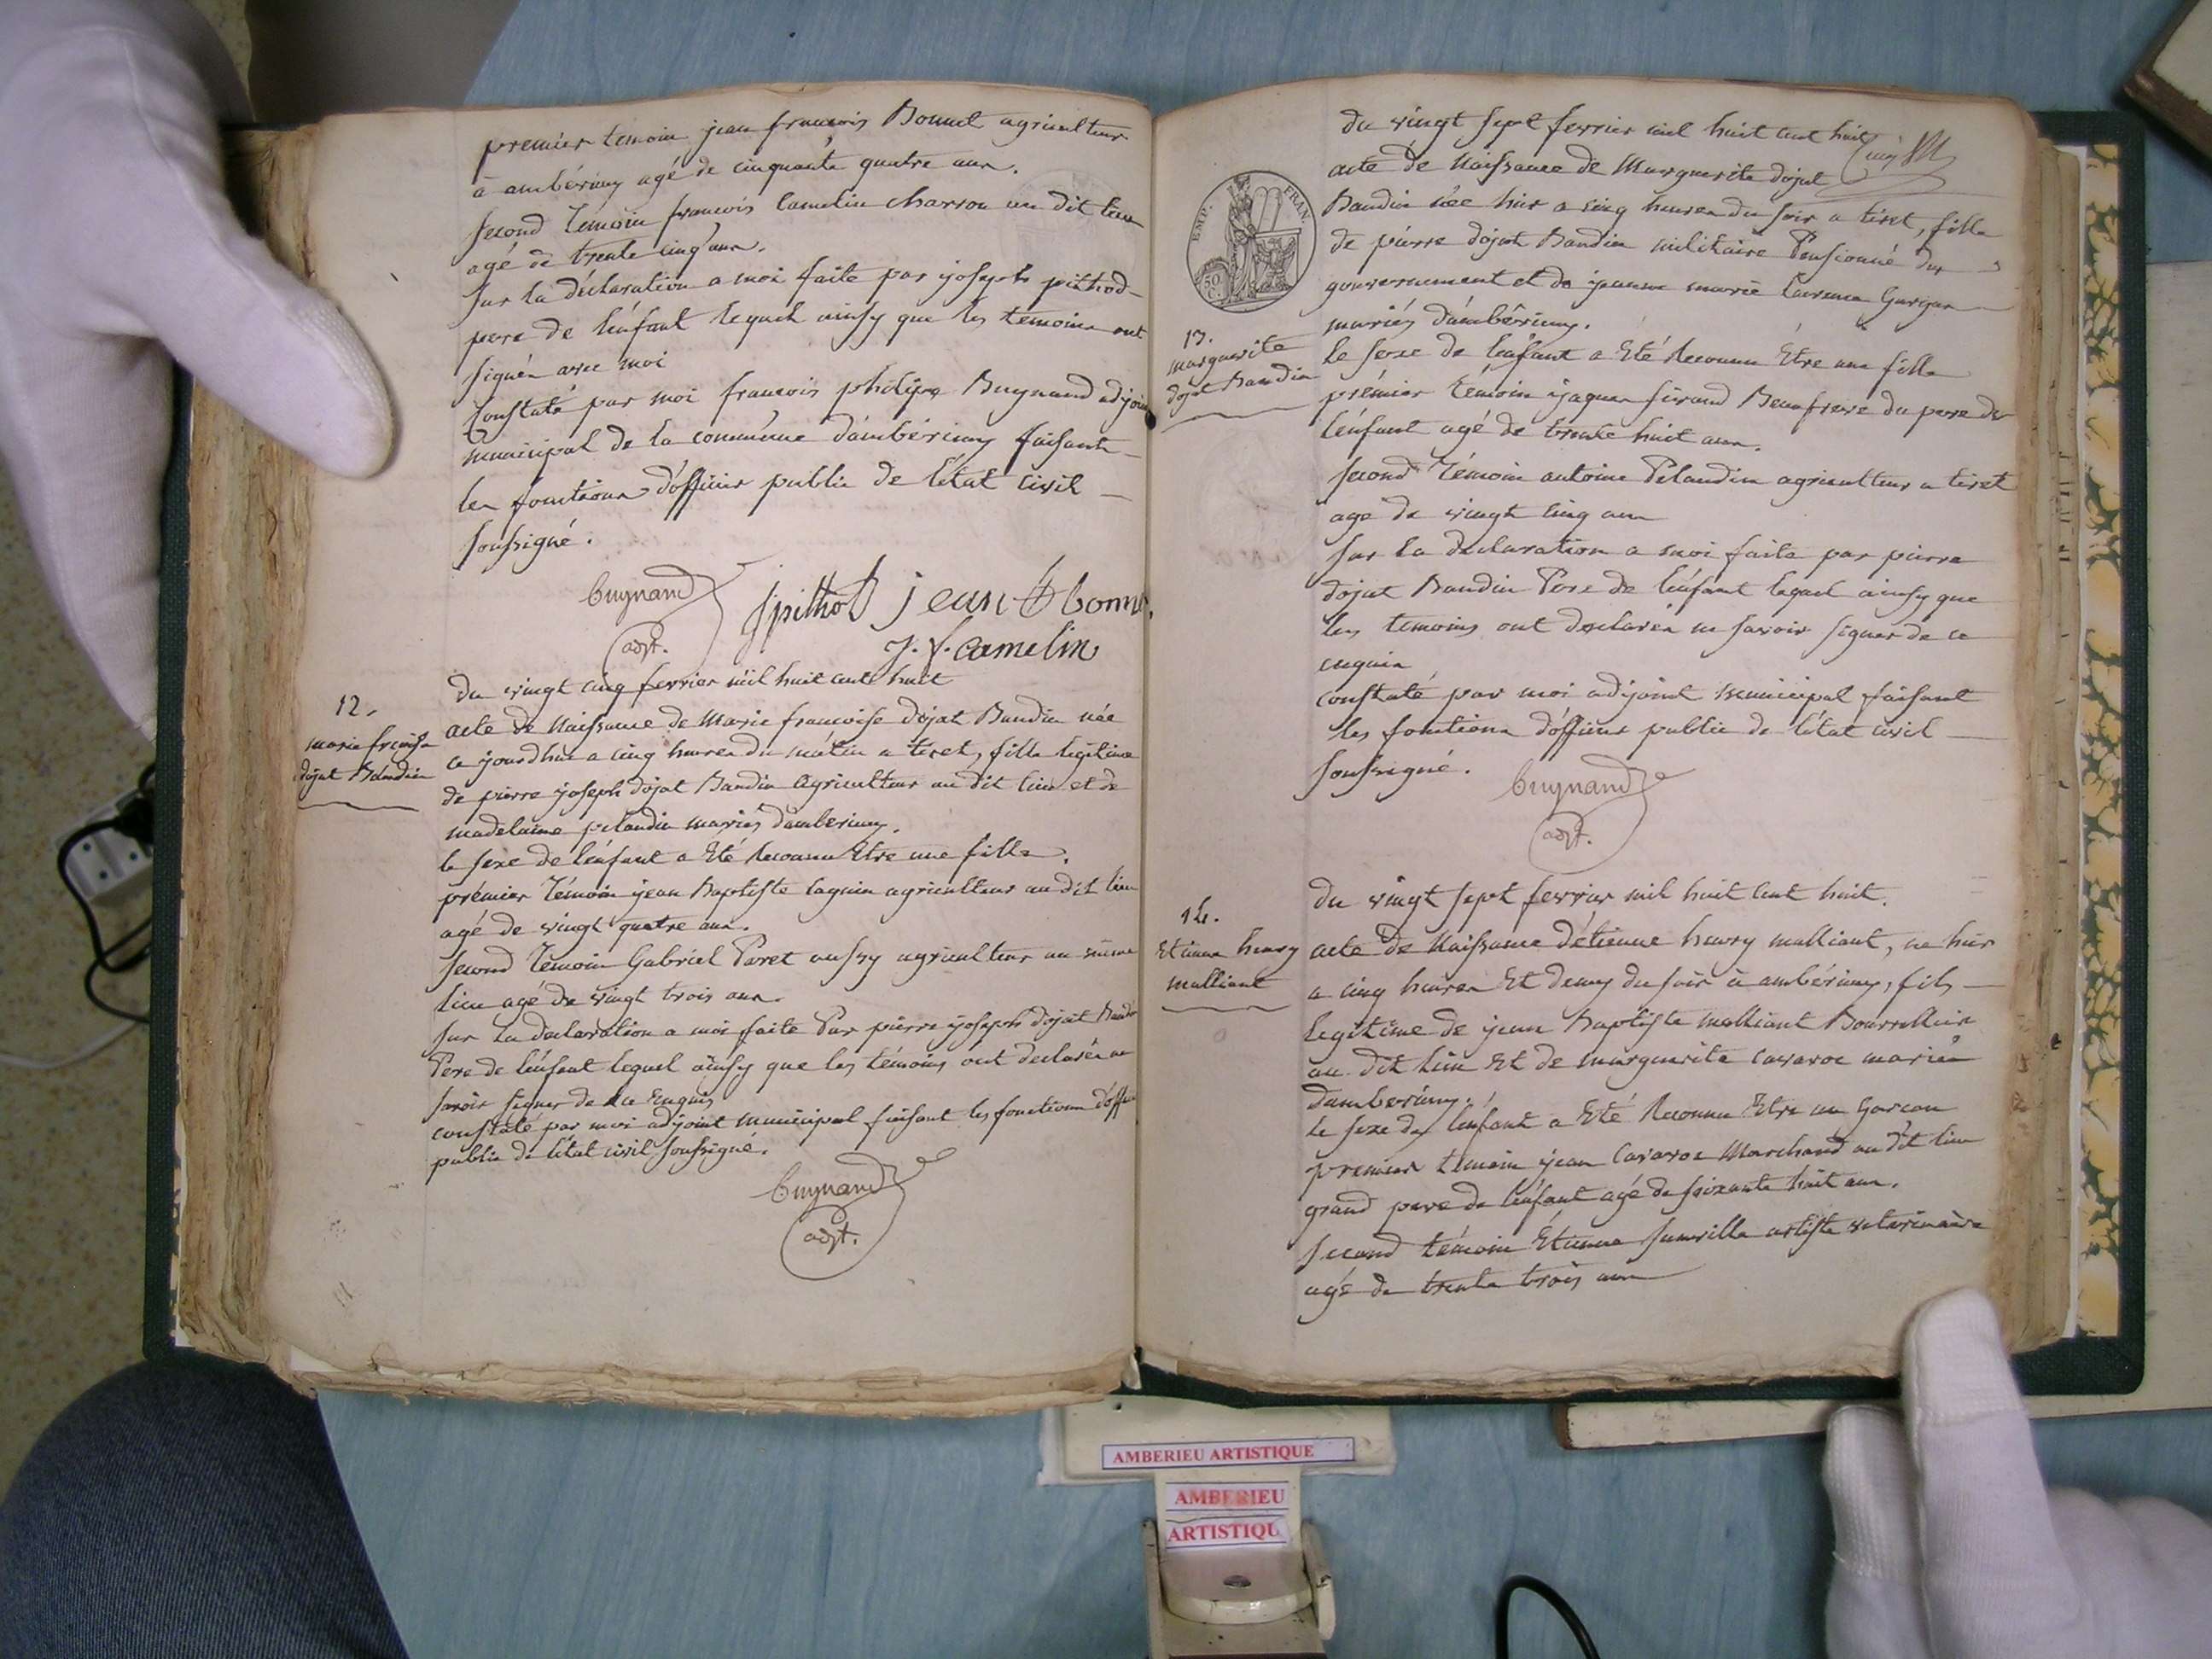 premier temoin jean francois Bonnet agriculteur
à ambérieux agé de cinquante quatre ans.
second temoin francois Camelin charron au dit lieu
agé de trente cinq ans.
sur la déclaration a moi faite par joseph pithod
pere de l'enfant lequel ainsy que les temoins ont
signés avec moi
Constaté par moi francois philipe Bugnand adjoint
municipal de la commune d'ambérieux faisant
les fonctions d'officier public de l'état civil
soussigné.
bugnand adjt.
jpithod jean f bonnet
J. f. Camelin
12.
marie frçoise
dojat Baudin
du vingt cinq fevrier mil huit cent huit
acte de Naissance de Marie francoise dojat Baudin née
ce jourdhui a cinq heures du matin a tiret, fille legitime
de pierre joseph dojat Baudin agriculteur au dit lieu et de
madelaine pelandin mariés d'amberieux.
le sexe de l'enfant a Eté Reconnu Etre une fille.
prémier témoin jean Baptiste lagnin agriculteur au dit lieu
agé de vingt quatre ans.
second temoin Gabriel Paret aussy agriculteur au même
lieu agé de vingt trois ans.
sur la declaration a moi faite Par pierre joseph dojat Baudin
Pere de l'enfant lequel ainsy que les témoins ont declarés ne
savoir signer de ce Enquis
constaté par moi adjoint municipal faisant les fonctions d'officier
public de l'état civil soussigné.
bugnand
adjt.
EMP. FRAN.
50 C.
du vingt sept fevrier mil huit cent huit
acte de Naissance de Marguerite dojat
Baudin née hier a cinq heures du soir a tiret, fille
de pierre dojat Baudin militaire Pensionné du
gouvernement et de jeanne marie
mariés d'ambérieux.
13.
marguerite
dojat Baudin
le sexe de l'enfant a Eté Reconnu Etre une fille
prémier témoin jaques sirand Beaufrere du pere de
l'enfant agé de trente huit ans.
second témoin antoine Pelandin agriculteur a tiret
age de vingt cinq ans
sur la declaration a moi faite par pierre
dojat Baudin Pere de l'enfant lequel ainsy que
les temoins ont declarés ne savoir signer de ce
enquis
constaté par moi adjoint municipal faisant
les fonctions d'officier public de l'état civil
soussigné.
bugnand
adjt.
du vingt sept fevrier mil huit cent huit.
14.
Etienne henry
malliant
acte de Naissance d'étienne henry malliant, ne hier
a cinq heures Et demy du soir à ambérieux, fils
legitime de jean Baptiste malliant Bourrellier
au dit lieu Et de marguerite cavaroc mariés
d'amberieux.
le sexe de l'enfant a Eté Reconnu Etre un Garcon
premier temoin jean Cavaroc Marchand au dit lieu
grand pere de l'enfant agé de soixante huit ans.
second témoin Etienne artiste veterinaire
agé de trente trois ans
AMBERIEU ARTISTIQUE
AMBERIEU
ARTISTIQU